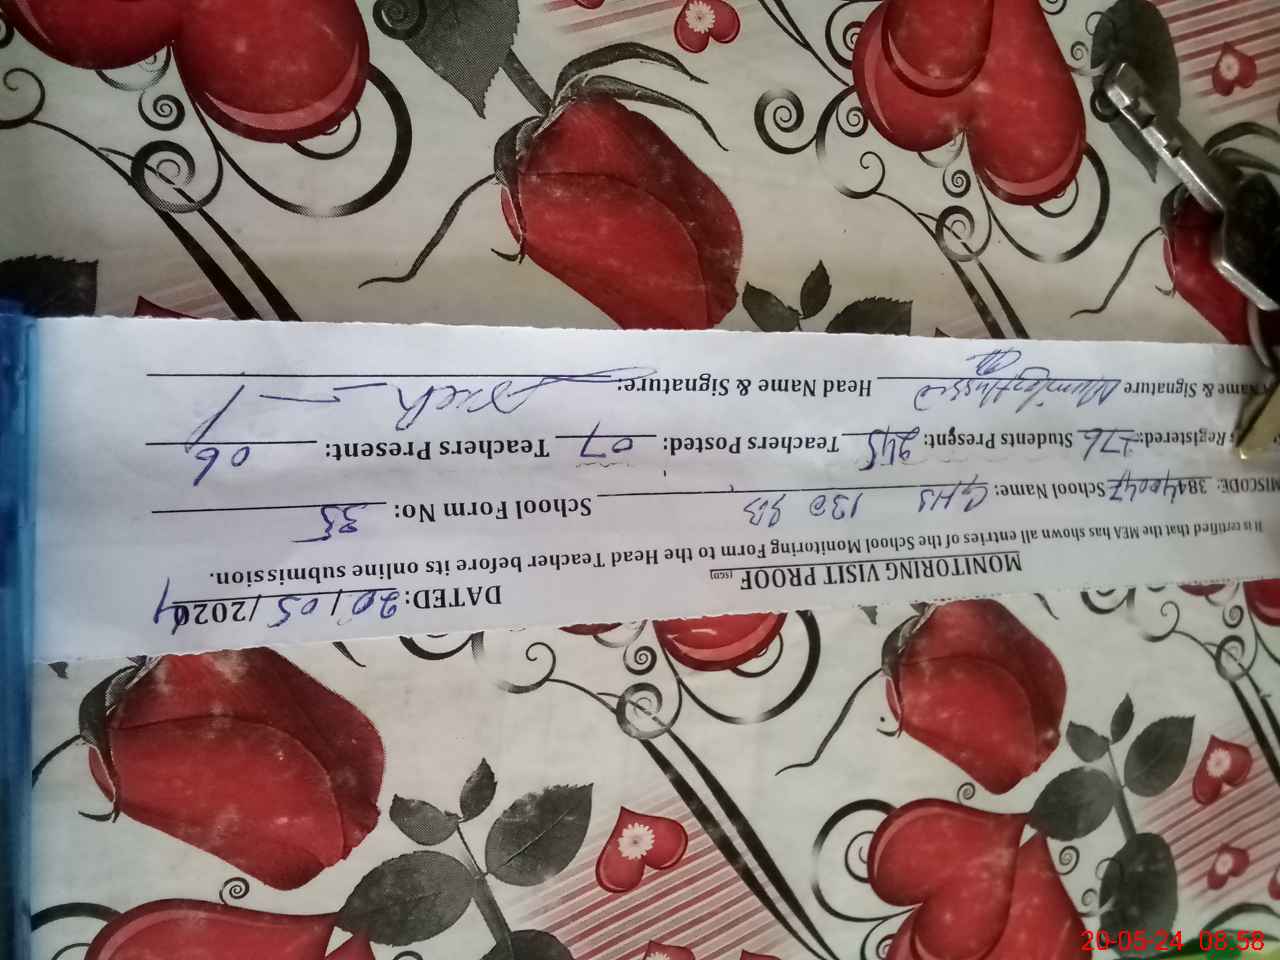 MONITORING VISIT PROOF (SED) DATED: 20/05/2024
It is certified that the MEA has shown all entries of the School Monitoring Form to the Head Teacher before its online submission.
MISCODE: 38440047 School Name: GHS 130 SB School Form No: 35
Registered: 276 Students Present: 245 Teachers Posted: 07 Teachers Present: 06
Name & Signature Head Name & Signature:
20-05-24 08:58